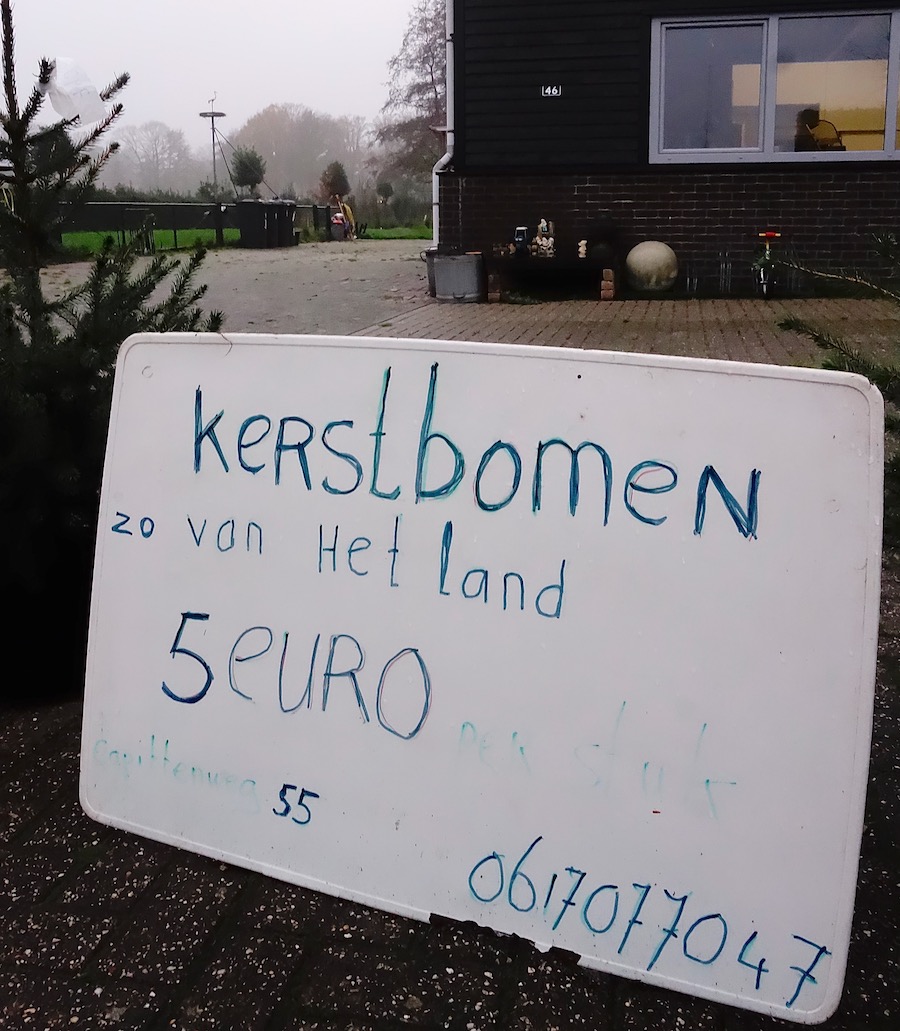 46
kerstbomen
zo van Het land
5 euro per stuk
Capittenweg 55
0617077047